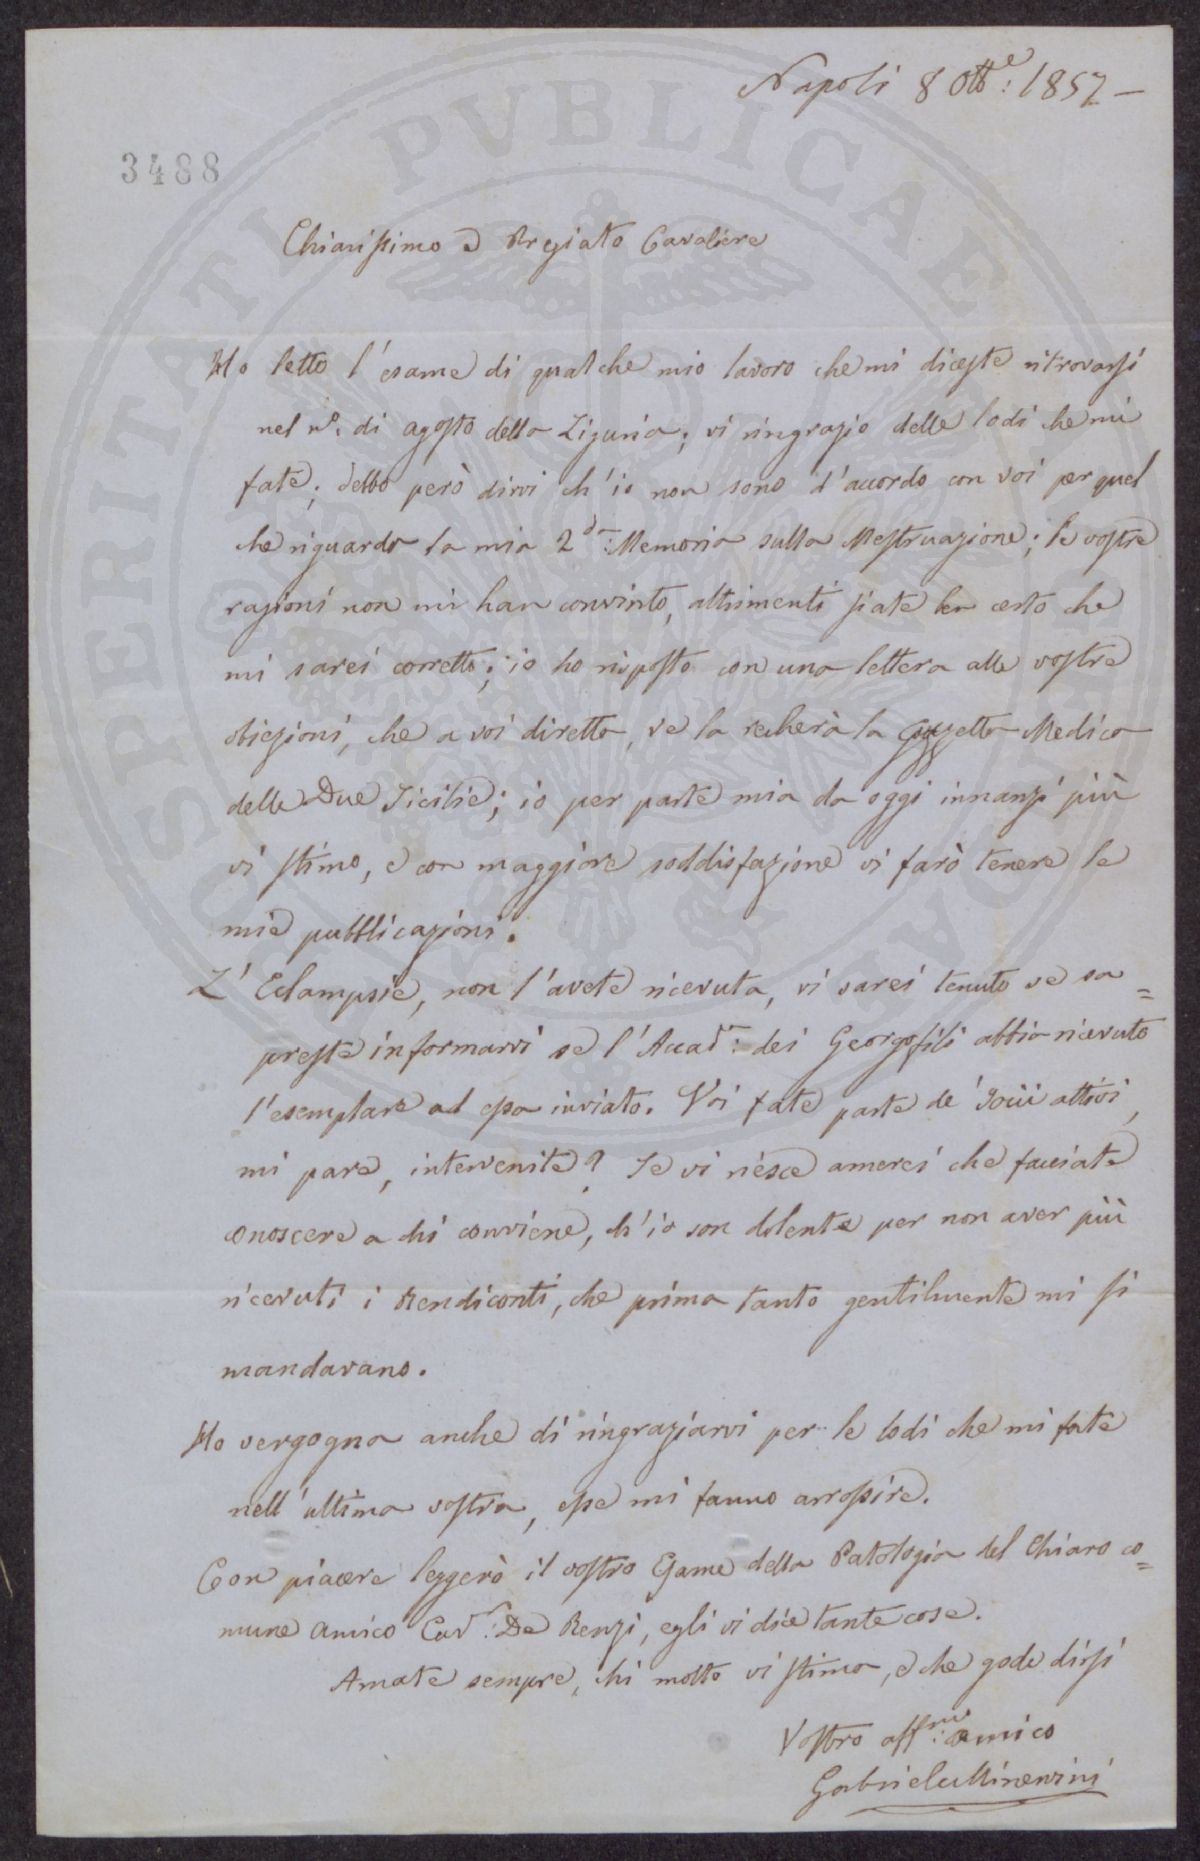 Napoli 8 Ott.e: 1857 –
3488
Chiarissimo e Pregiato Cavaliere
Ho letto l'esame di qualche mio lavoro che mi diceste ritrovarsi
nel n.o: di agosto della Liguria; vi ringrazio delle lodi che mi
fate; debbo però dirvi ch'io non sono d'accordo con voi per quel
che riguarda la mia 2.da: Memoria sulla Mestruazione; le vostre
ragioni non mi han convinto, altrimenti siate ben certo che
mi sarei corretto; io ho risposto con una lettera alle vostre
obiezioni, che a voi diretta, ve la recherà la Gazzetta Medica
delle Due Sicilie; io per parte mia da oggi innanzi più
vi stimo, e con maggiore soddisfazione vi farò tenere le
mie pubblicazioni.
L'Eclampsie, non l'avete ricevuta, vi sarei tenuto se sa=
preste informarvi se l'Accad.a: dei Georgofili abbia ricevuto
l'esemplare ad essa inviato. Voi fate parte de' Socii attivi,
mi pare, intervenite? Se vi riesce amerei che facciate
conoscere a chi conviene, ch'io son dolente per non aver più
ricevuti i Rendiconti, che prima tanto gentilmente mi si
mandavano.
Ho vergogna anche di ringraziarvi per le lodi che mi fate
nell'ultima vostra, esse mi fanno arrossire.
Con piacere leggerò il vostro Esame della Patologia del Chiaro co=
mune amico Cav.r: De Renzi, egli vi dice tante cose.
Amate sempre, chi molto vi stima, e che gode dirsi
Vostro aff.mo: amico
Gabriele Minervini
PROSPERITATI PUBLICAE